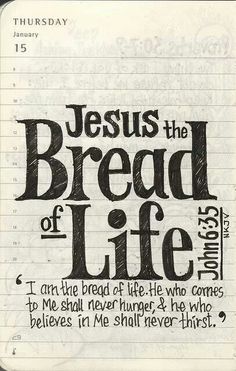 THURSDAY
January
15
Jesus the
Bread
of Life
John 6:35
NKJV
" I am the bread of life. He who comes
to Me shall never hunger, & he who
believes in Me shall never thirst. "